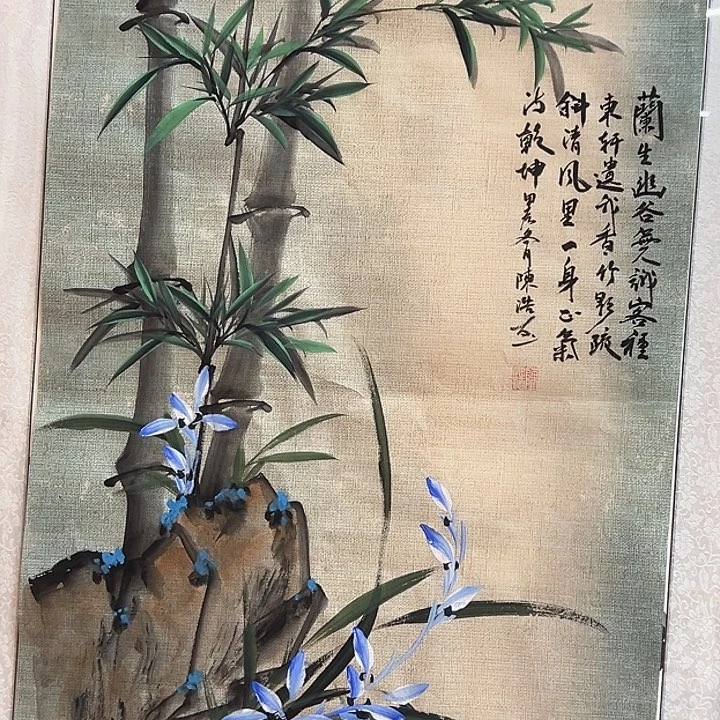 蘭生幽谷無人識客種
東軒遺我香竹影疎
斜清風里一身正氣
满乾坤 冬月陳浩